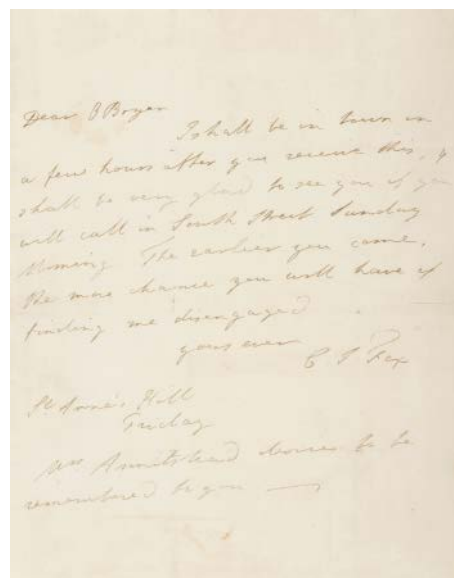 Dear O Bryen
I shall be in town in
a few hours after you receive this, &
shall be very glad to see you if you
will call in South Street Sunday
Morning The earlier you come,
the more chance you will have of
finding me disengaged
yours ever
C J Fox
St Anne's Hill
Friday
Mrs Armitstead desires to be
remembered to you